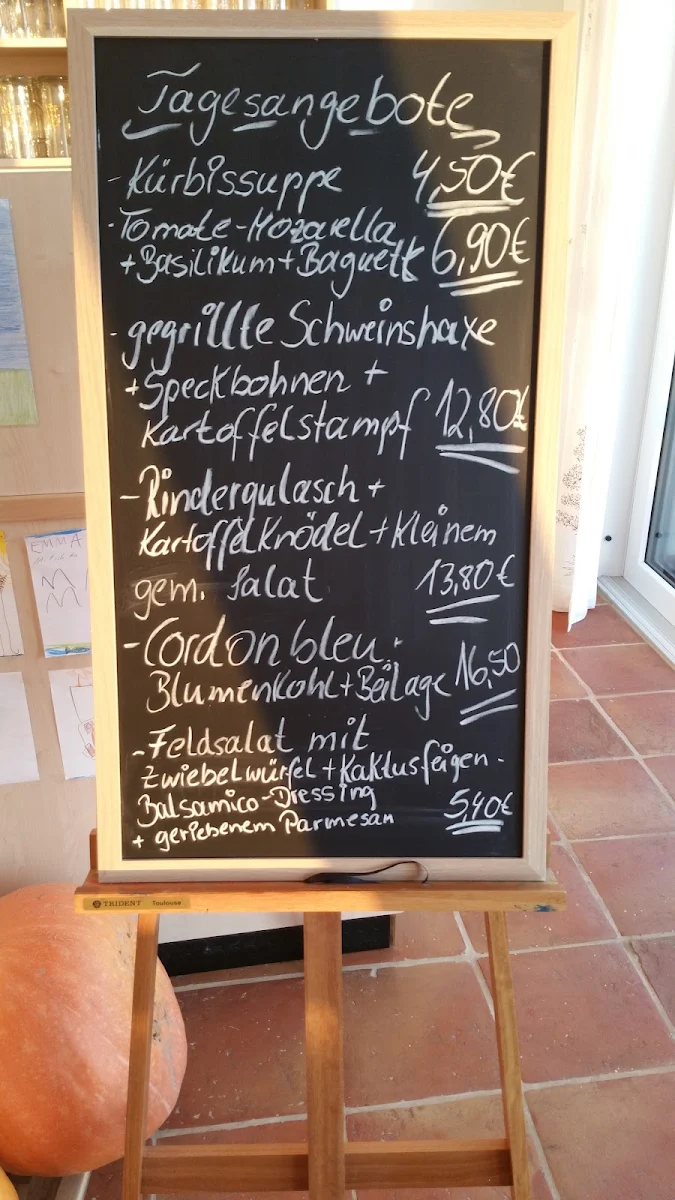 Tagesangebote
- Kürbissuppe 4,50€
- Tomate-Mozarella
+ Basilikum + Baguette 6,90€
- gegrillte Schweinshaxe
+ Speckbohnen +
Kartoffelstampf 12,80€
- Rindergulasch +
Kartoffelknödel + kleinem
gem. Salat 13,80€
- Cordon bleu.
Blumenkohl + Beilage 16,50
- Feldsalat mit
Zwiebelwürfel + Kaktusfeigen-
Balsamico-Dressing
+ geriebenem Parmesan 5,40€
TRIDENT Toulouse
EMMA